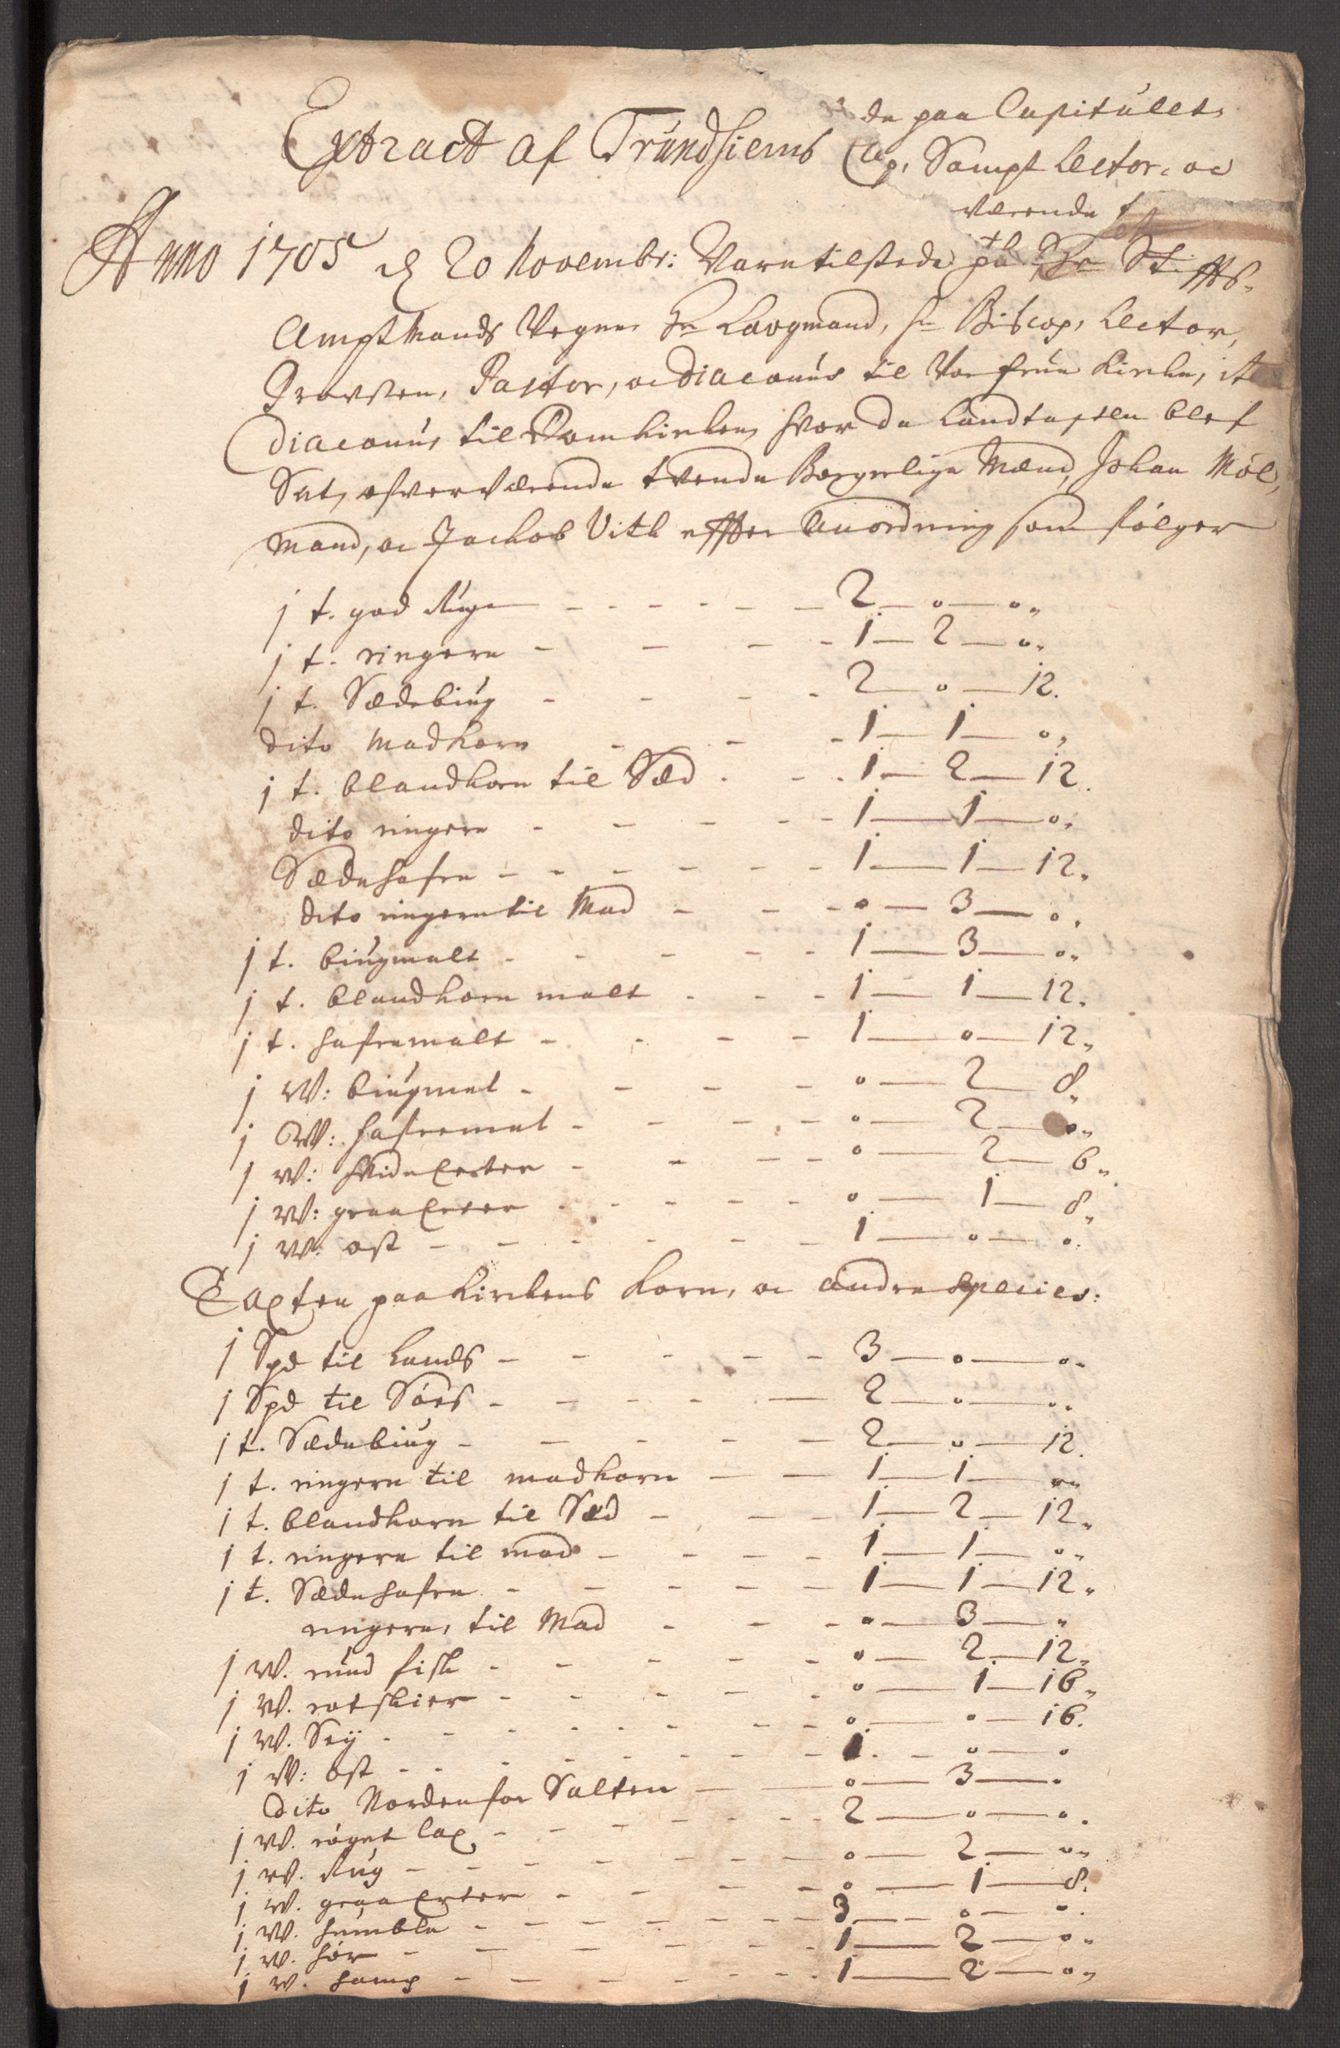 Extract af Trundhiems
de paa Capitulet
Sampt Lector, oc
værende
Anno 1705 d 20 Novembr: Vare tilstede paa Hr Stiffts-
Ampthmands Vegne, Hr Laugmand, Hr Biscop, Lector,
Provsten, Pastor, oc Diaconus til Vor frue Kirke, it
Diaconus til Domkirken, hvor da Landtaxten blef
Sat, ofverværende tvende Borgerlige Mænd, Johan Møl-
mand, oc Jachob Vith effter Anordning som følger
j t. god Ruge - - - 2 — o — o„
j t. ringere - - - 1 — 2 — o„
j t. Sædebiug - - - 2 — o — 12.
dito Madkorn - - - 1 — 1 — o„
j t. blandkorn til Sæd - - - 1 — 2 — 12.
dito ringere - - - 1 — 1 — o„
Sædehafre - - - 1 — 1 — 12„
dito ringere til Mad - - - o — 3 — o„
j t. biugmalt - - - 1 — 3 — o„
j t. blandkorn malt - - - 1 — 1 — 12„
j t. hafremalt - - - 1 — o — 12„
j W: biugmel - - - o — 2 — 8„
j W: hafremel - - - o — 2 — o„
j W: hvide Erter - - - o — 2 — 6„
j W: graa Erter - - - o — 1 — 8„
j W: ost - - - 1 — o — o.
Taxten paa Kirkens Korn, oc andre Species:
j Spd til Lands - - - 3 — o — o„
j Spd til Søes - - - 2 — o — o„
j t. Sædebiug - - - 2 — o — 12.
j t. ringere til madkorn - - - 1 — 1 — o„
j t. blandkorn til Sæd - - - 1 — 2 — 12„
j t. ringere til mad - - - 1 — 1 — o„
j t. Sædehafre - - - 1 — 1 — 12„
ringere, til Mad - - - o — 3 — „
j W. rund fisk - - - o — 2 — 12„
j W. rotskier - - - o — 1 — 16„
j W. Sey - - - o — o — 16.
j W: ost - - - 1 — o — o
dito Nordenfor Salten - - - o — 3 — o
j W. røget lax - - - 2 — o — o.
j W. Rug - - - o — 2 — o„
j W. graa Erter - - - o — 1 — 8.
j W. humble - - - 3 — o — o.
j W. hør - - - 1 — 2 — o„
j W. hamp - - - 1 — 2 — o„